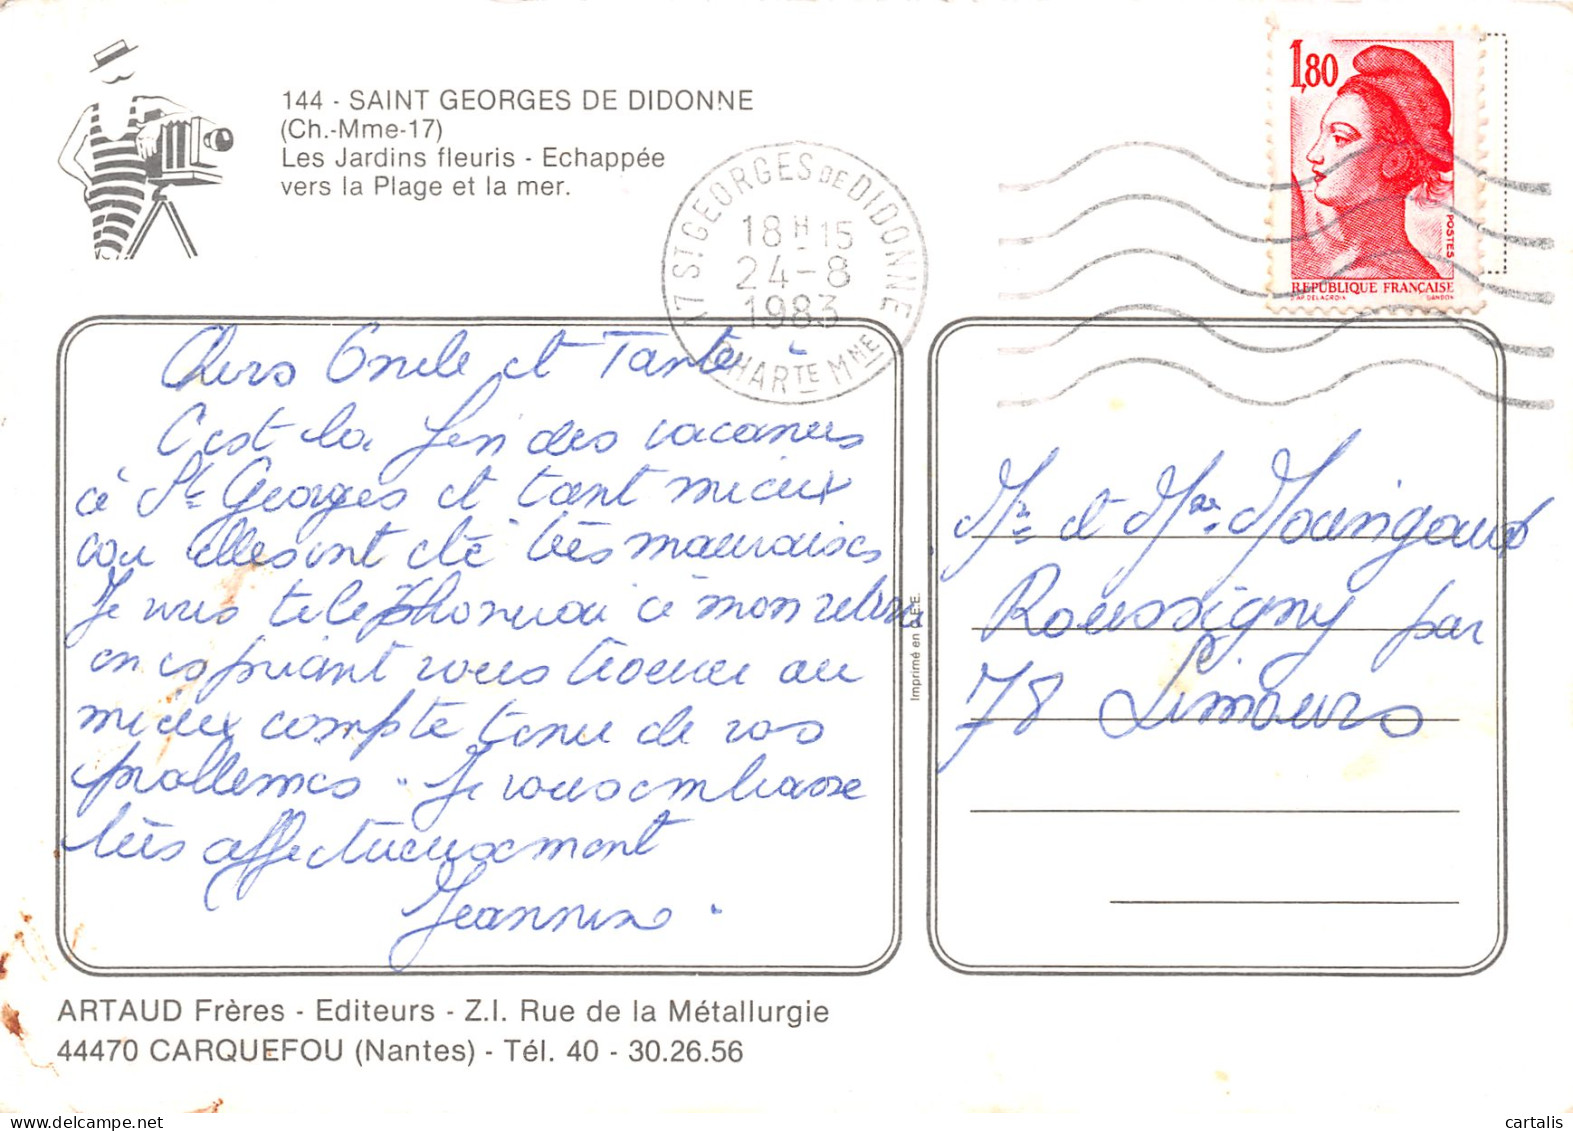 144 - SAINT GEORGES DE DIDONNE
(Ch.-Mme-17)
Les Jardins fleuris - Echappée
vers la Plage et la mer.
17 ST GEORGES DE DIDONNE
18H15
24-8
1983
CHARTE MME
1,80
POSTES
REPUBLIQUE FRANÇAISE
D'AP. DELACROIX GANDON
Chers Oncle et Tante
C'est la fin des vacances
à St Georges et tant mieux
car elles ont été très mauvaises.
Je vous téléphonerai à mon retour
en espérant vous trouver au
mieux compte tenu de vos
problèmes. Je vous embrasse
très affectueusement
Jeannine.
Imprimé en C.E.E.
Mr et Mme
Roussigny par
78 Limours
ARTAUD Frères - Editeurs - Z.I. Rue de la Métallurgie
44470 CARQUEFOU (Nantes) - Tél. 40 - 30.26.56
cartalis